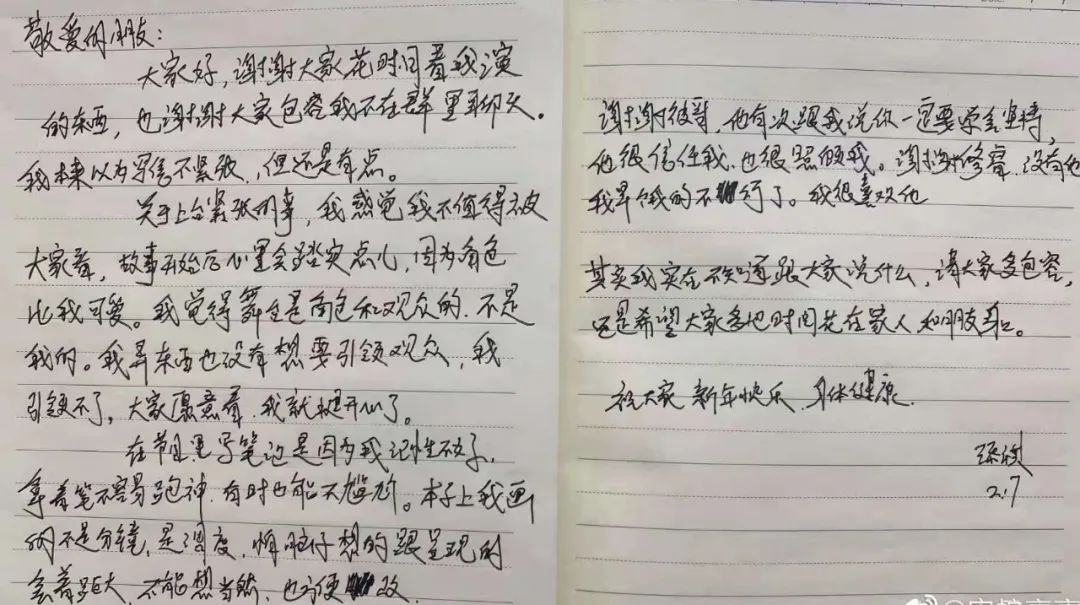 敬爱的朋友：
大家好，谢谢大家花时间看我演
的东西，也谢谢大家包容我不在群里聊天。
我本来以为写信不紧张，但还是有点。
关于上台紧张的事，我感觉我不值得被
大家看，故事开始后心里会踏实点儿，因为角色
比我可爱。我觉得舞台是角色和观众的，不是
我的。我弄东西也没有想要引领观众，我
引领不了。大家愿意看，我就挺开心了。
在节目里写笔记是因为我记性不好，
拿着笔不容易跑神，有时也能不尴尬。本子上我画
的不是分镜，是调度，怕脑仔想的跟呈现的
会差距大，不能想当然，也方便改
谢谢彼得，他有次跟我说你一定要学会坚持，
他很信任我，也很照顾我。谢谢修睿，没有他
我早饿的不行了。我很喜欢他
其实我实在不知道跟大家说什么，请大家多包容，
还是希望大家多把时间花在家人和朋友身上。
祝大家新年快乐 身体健康.
2.7